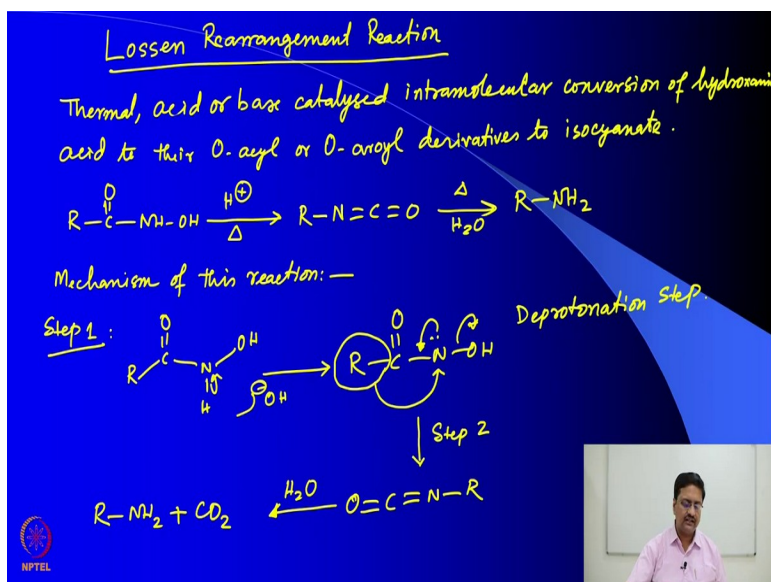 Lossen Rearrangement Reaction
Thermal, acid or base catalysed intramolecular conversion of hydroxami
acid to their O-acyl or O-aroyl derivatives to isocyanate.
O H⊕ Δ
R-C-NH-OH → R-N=C=O → R-NH2
Δ H2O
Mechanism of this reaction:—
Deprotonation Step.
Step 1:
O OH O
R C N → R-C-N̈-OH
H ⊖OH
Step 2
H2O
R-NH2 + CO2 ← O=C=N-R
NPTEL